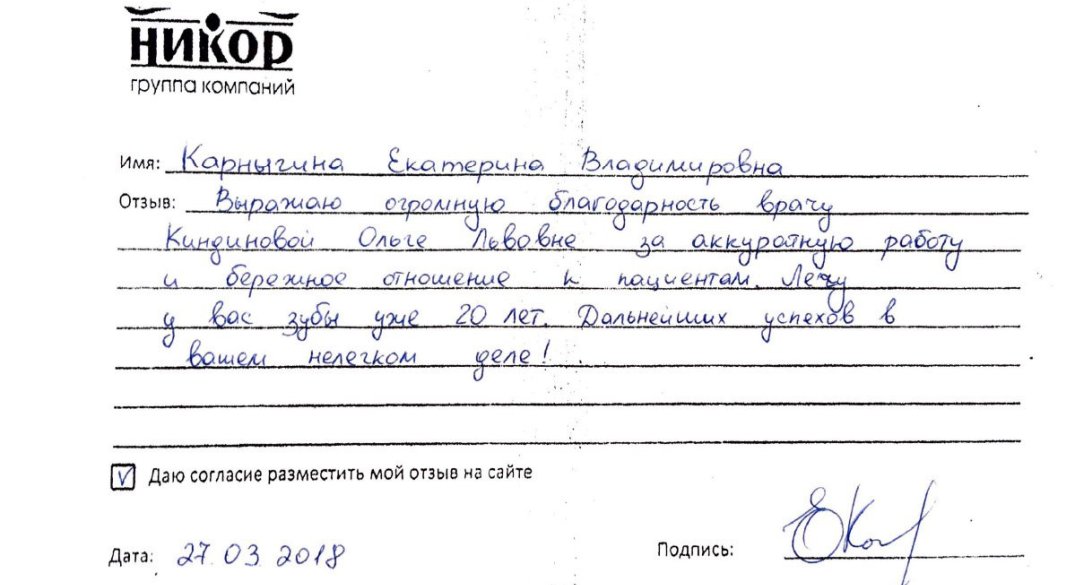 НИКОР
группа компаний
Имя: Карныгина Екатерина Владимировна
Отзыв: Выражаю огромную благодарность врачу
Киндиновой Ольге Львовне за аккуратную работу
и бережное отношение к пациентам. Лечу
у вас зубы уже 20 лет. Дальнейших успехов в
вашем нелегком деле!
Даю согласие разместить мой отзыв на сайте
Дата: 27.03.2018
Подпись: